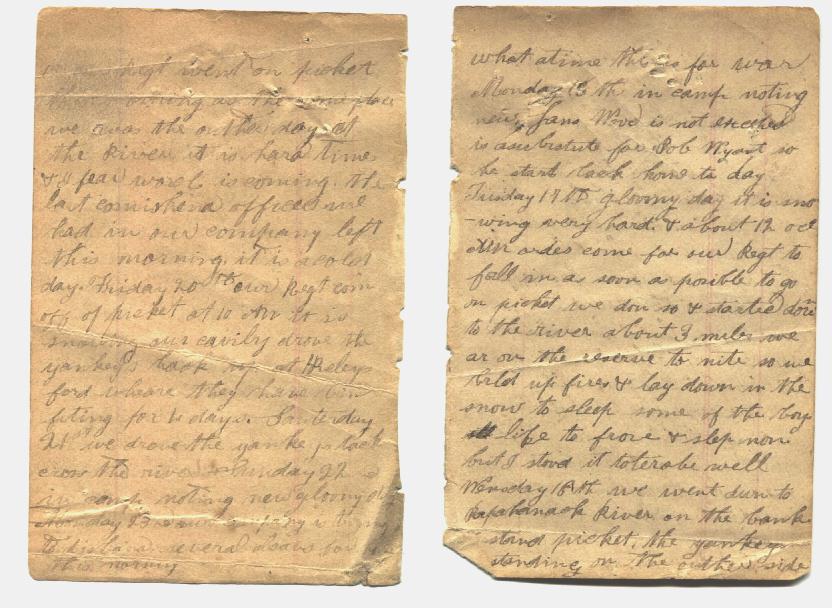 Regt went on picket
this morning at the same place
we was the outher day at
the River it is hard times
& I fear worse is coming. the
last comishend officer we
had in our company left
this morning. it is a cold
day. Friday 20th our Regt com
off of picket at 10 AM it is
snowing our cavilry drove the
yankeys back at
ford wheare they have bin
fiting for days. Saturday
21st we drove the yankeys back
cross the river Sunday 22
in camp noting new gloomy
Monday 23 our company is
several
this morning
what a time this is for war
Monday 16 th in camp noting
new, Jans Wove is not excepted
is a substute for Bob Wyant so
he start back home to day
Tusday 17th gloomy day it is sno
-wing very hard. & about 12 ocl
AM ordes come for our Regt to
fall in as soon a posible to go
on picket we don so & started down
to the river about 3 miles we
ar on the reserve to nite so we
bild up fires & lay down in the
snow to sleep some of the boys
life to froze & slep non
but I stood it toterabe well
Wensday 18th we went down to
Rapahanock River on the bank
stand picket. the yankeys
standing on the outher side